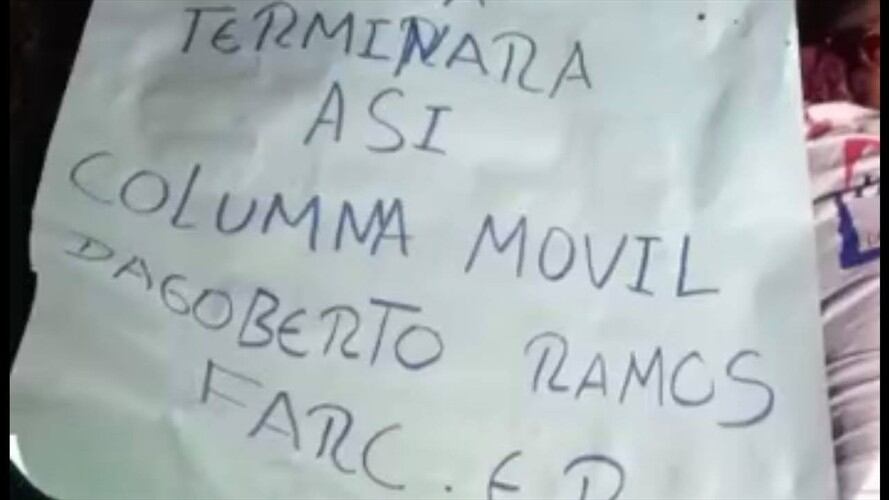 TERMINARA
ASI
COLUMNA MOVIL
DAGOBERTO RAMOS
FARC. EP